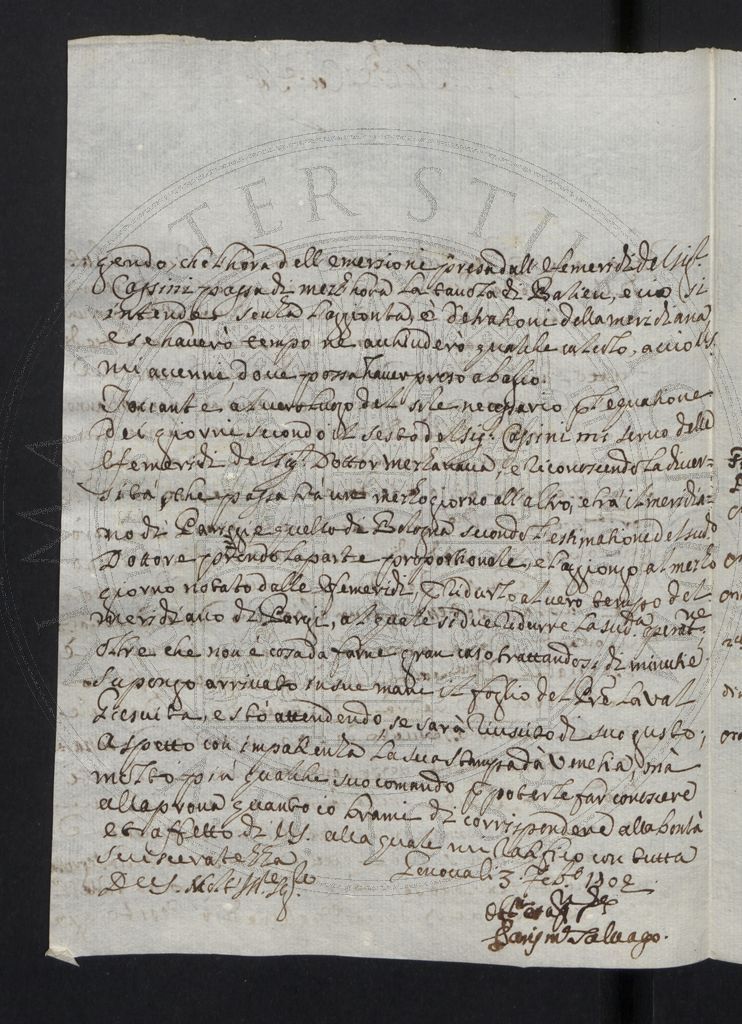 gendo, che l'hora dell'emersione presa dall'Efemeridi del Sig.r
Cassini passa di mezz'hora la tavola di Balieu, e ciò si
intende senza l'aggionta, ò detrationi della meridiana
e se haverò tempo ne acchiuderò qualche calcolo, acciò V.S.
mi accenne, dove possa haver preso abaglio.
Toccante al vero luogo del sole necessario p l'equatione
dei giorni secondo il sesto del Sig.r Cassini mi servo delle
Efemeridi del Sig.r Dottor Mezzavacca, e riconoscendo la diver-
sità, che passa trà un mezzogiorno all'altro, e trà il meridia-
no di Parigi e quello di Bologna secondo l'estimatione del sud.o
Dottore prendo la parte proportionale, e l'aggiongo al mezzo
giorno notato dalle Efemeridi, p ridurlo al vero tempo del
meridiano di Parigi, al quale si due ridurre la sud.a operat.ne
oltre che non è cosa da farne gran caso trattandosi di minutie.
Supongo arrivato in sue mani il foglio del P.re Laval
Giesuita, e stò attendendo, se sarà riuscito di suo gusto;
Aspetto con impatienza la sua stampa dà Venetia, mà
molto più qualche suo comando p poterle far conoscere
alla prova quanto io brami di corrispondere alla bontà
et affetto di V.S. alla quale mi ratifico con tutta
svisceratezza
Genova li 3 Feb.o 1702
Di V.S. Molt' Ill.e Sig.re
Salvago.
TER STU